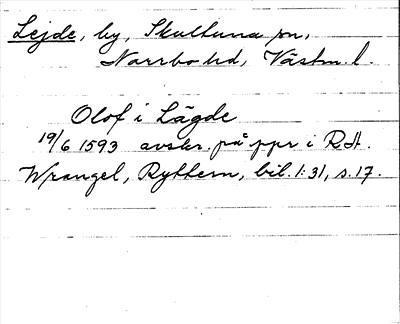 Lejde, by, Skultuna sn,
Norrbo hd, Västm. l.
Olof i Lägde
19/6 1593 avskr. på ppr i R.A.
Wrangel, Ryttern, bil. 1:31, s. 17.